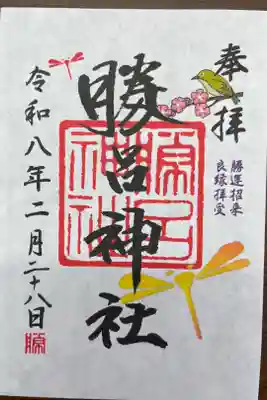 奉拝
勝運招来
良縁拝受
勝呂神社
令和八年二月二十八日
勝呂神社